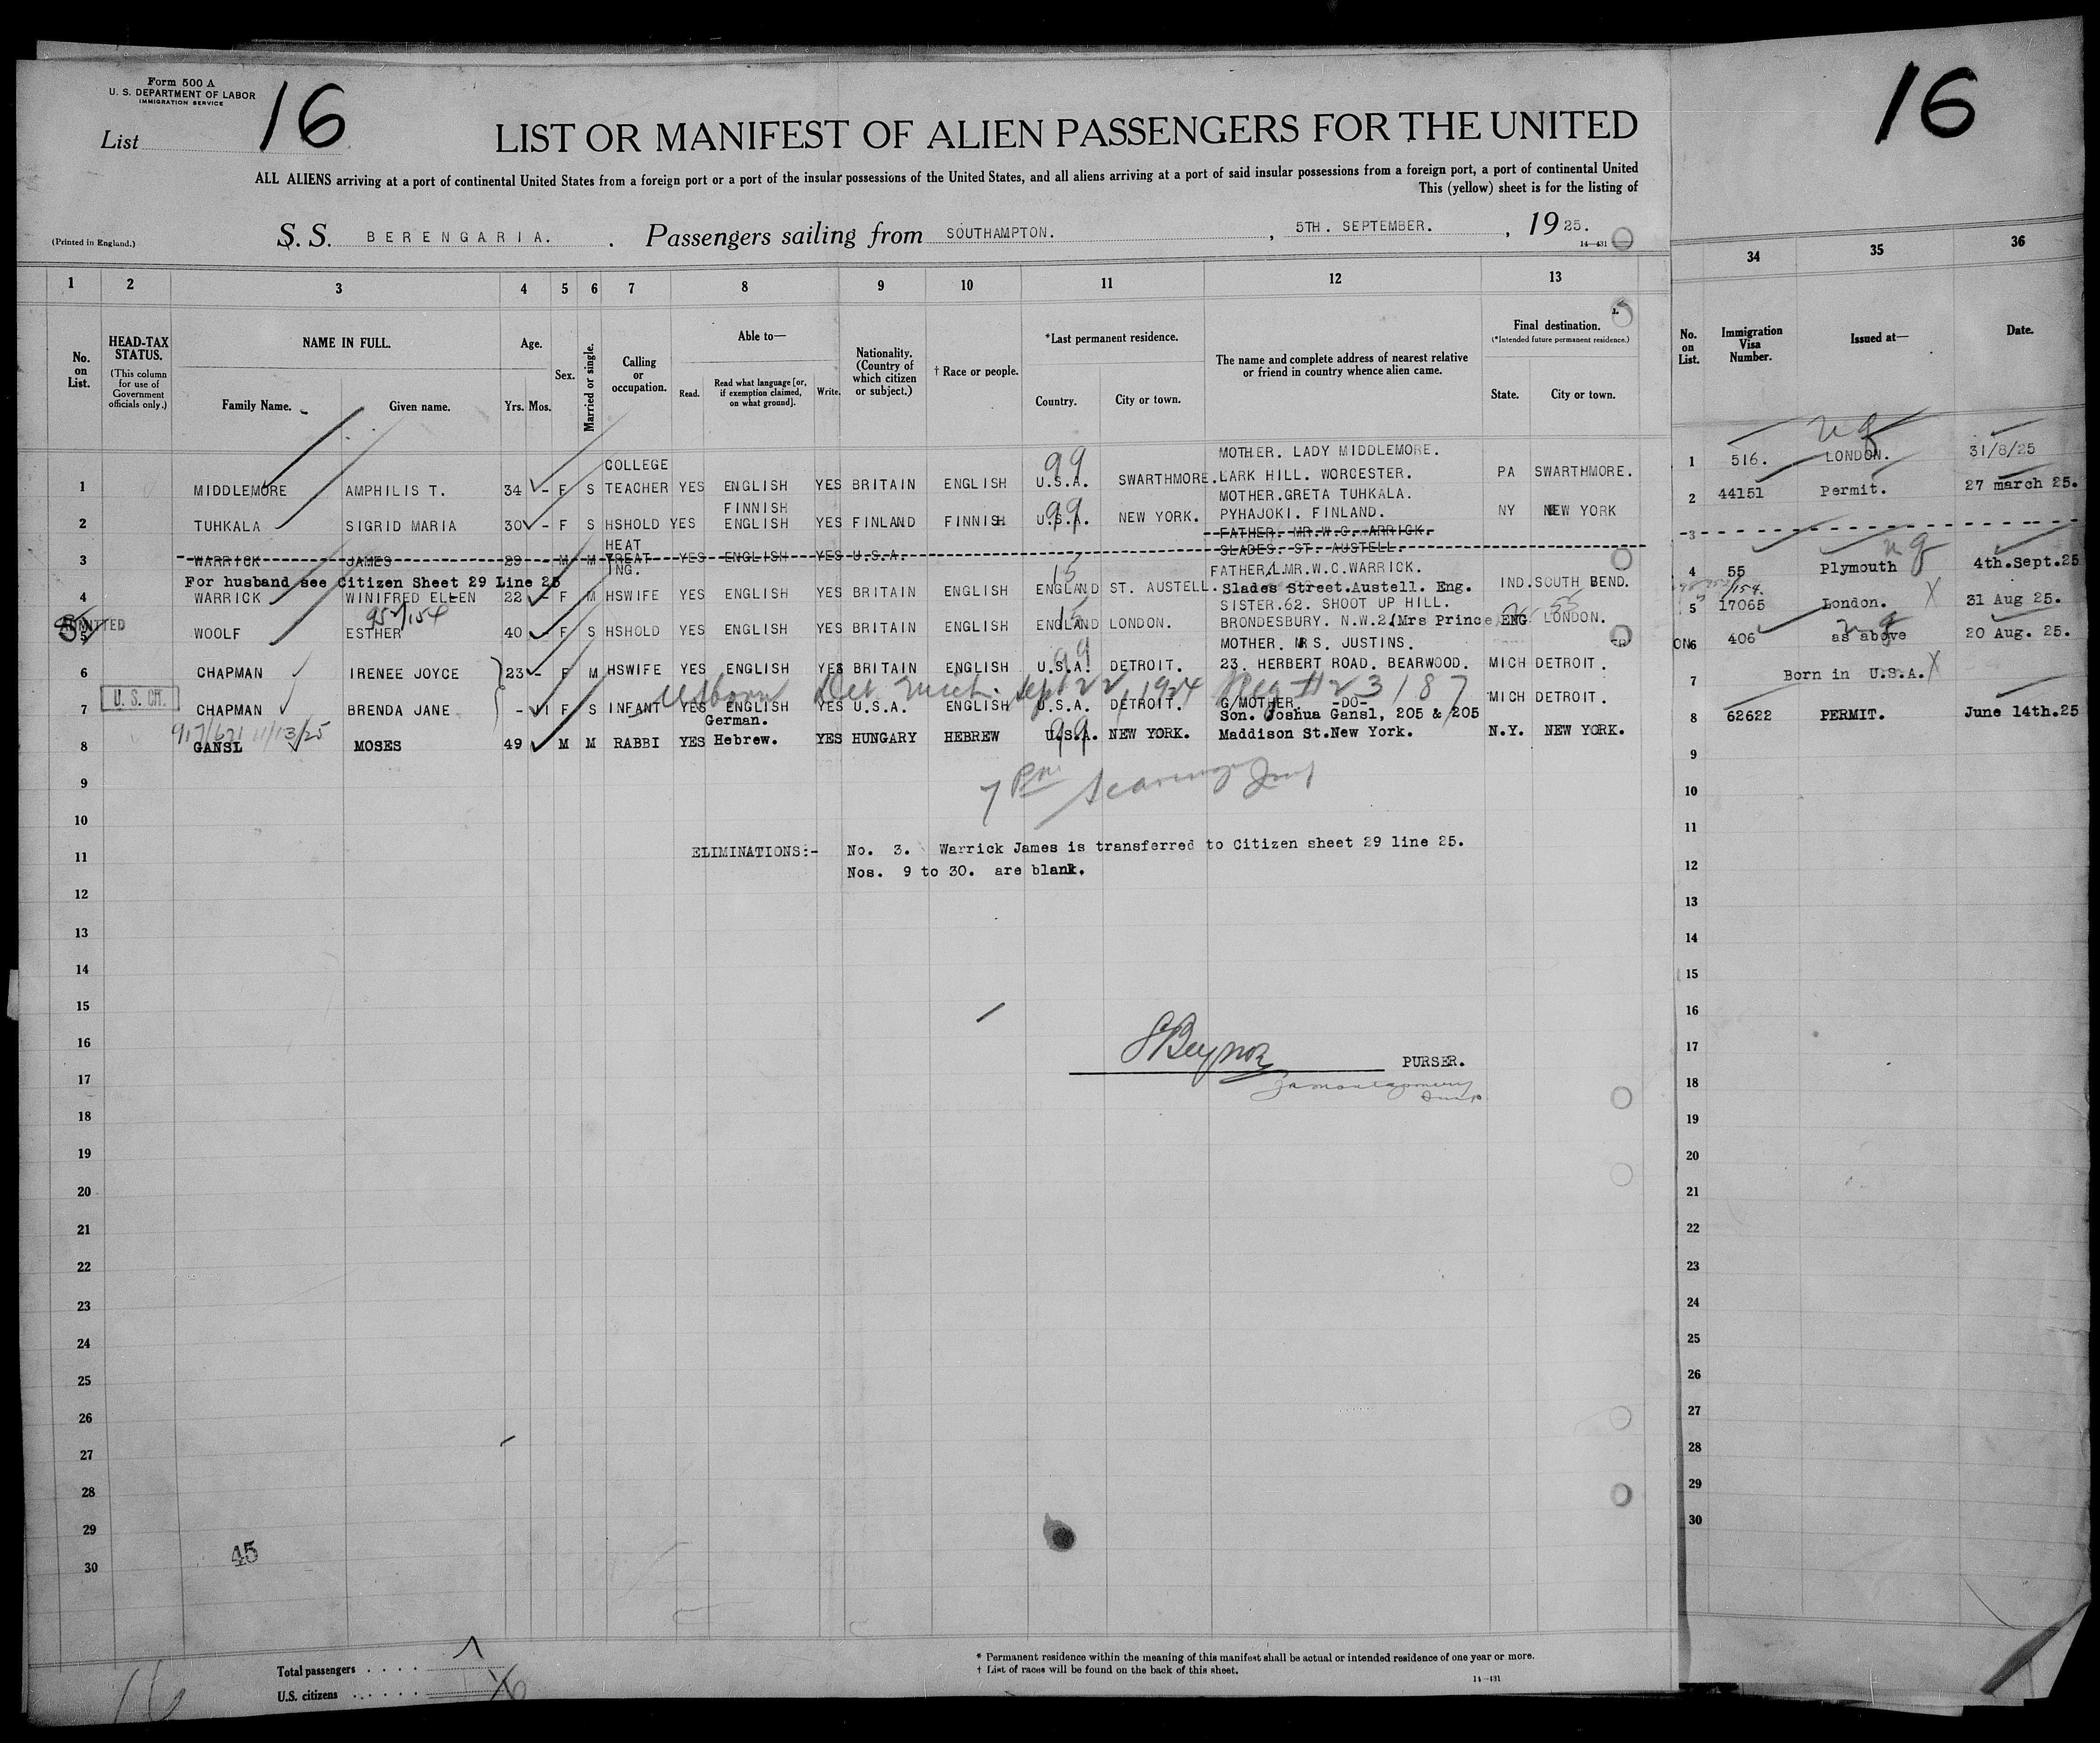 Form 500 A
U. S. DEPARTMENT OF LABOR
IMMIGRATION SERVICE
List 16
16
LIST OR MANIFEST OF ALIEN PASSENGERS FOR THE UNITED
ALL ALIENS arriving at a port of continental United States from a foreign port or a port of the insular possessions of the United States, and all aliens arriving at a port of said insular possessions from a foreign port, a port of continental United
This (yellow) sheet is for the listing of
(Printed in England.)
S. S. BERENGARIA. Passengers sailing from SOUTHAMPTON. , 5TH. SEPTEMBER. , 1925.
14—431
1 2 3 4 5 6 7 8 9 10 11 12 13 34 35 36
No. on List.
HEAD-TAX STATUS.
(This column for use of Government officials only.)
NAME IN FULL.
Family Name. Given name.
Age.
Yrs. Mos.
Sex.
Married or single.
Calling or occupation.
Able to—
Read. Read what language [or, if exemption claimed, on what ground]. Write.
Nationality. (Country of which citizen or subject.)
† Race or people.
*Last permanent residence.
Country. City or town.
The name and complete address of nearest relative or friend in country whence alien came.
Final destination.
(*Intended future permanent residence.)
State. City or town.
No. on List.
Immigration Visa Number.
Issued at—
Date.
MOTHER. LADY MIDDLEMORE.
1 MIDDLEMORE AMPHILIS T. 34 - F S COLLEGE TEACHER YES ENGLISH YES BRITAIN ENGLISH 99 U.S.A. SWARTHMORE. LARK HILL. WORCESTER. PA SWARTHMORE. 1 516. LONDON. 31/8/25
MOTHER.GRETA TUHKALA.
2 TUHKALA SIGRID MARIA 30 - F S HSHOLD YES FINNISH ENGLISH YES FINLAND FINNISH 99 U.S.A. NEW YORK. PYHAJOKI. FINLAND. NY NEW YORK 2 44151 Permit. 27 march 25.
FATHER. MR.W.C. ARRICK.
3 WARRICK JAMES 29 - M M HEAT TREAT ING. YES ENGLISH YES U.S.A. SLADES. ST. AUSTELL. 3
For husband see Citizen Sheet 29 Line 25
FATHER,L.MR.W.C.WARRICK.
4 WARRICK WINIFRED ELLEN 22 - F M HSWIFE YES ENGLISH YES BRITAIN ENGLISH 15 ENGLAND ST. AUSTELL. Slades Street.Austell. Eng. IND. SOUTH BEND. 4 55 Plymouth 4th.Sept.25
952/154
SISTER.62. SHOOT UP HILL.
ADMITTED
5 WOOLF ESTHER 40 - F S HSHOLD YES ENGLISH YES BRITAIN ENGLISH 15 ENGLAND LONDON. BRONDESBURY. N.W.2.(Mrs Prince ENG LONDON. 5 17065 London. 31 Aug 25.
MOTHER. MRS. JUSTINS.
6 CHAPMAN IRENEE JOYCE 23 - F M HSWIFE YES ENGLISH YES BRITAIN ENGLISH 99 U.S.A. DETROIT. 23. HERBERT ROAD. BEARWOOD. MICH DETROIT. 6 406 as above 20 Aug. 25.
U. S. CIT.
US born Det Mich. Sept 22, 1924 Reg #23187
7 CHAPMAN BRENDA JANE - 11 F S INFANT YES ENGLISH YES U.S.A. ENGLISH U.S.A. DETROIT. G/MOTHER. -DO- MICH DETROIT. 7 Born in U.S.A.
917/621 11/13/25
German.
Son. Joshua Gansl, 205 & 205
8 GANSL MOSES 49 M M RABBI YES Hebrew. YES HUNGARY HEBREW 99 U.S.A. NEW YORK. Maddison St.New York. N.Y. NEW YORK. 8 62622 PERMIT. June 14th.25
9 9
10 10
11 ELIMINATIONS:- No. 3. Warrick James is transferred to Citizen sheet 29 line 25. 11
Nos. 9 to 30. are blank.
12 12
13 13
14 14
15 15
16 16
17 PURSER. 17
18 18
19 19
20 20
21 21
22 22
23 23
24 24
25 25
26 26
27 27
28 28
29 29
30 30
45
16
Total passengers
U.S. citizens
* Permanent residence within the meaning of this manifest shall be actual or intended residence of one year or more.
† List of races will be found on the back of this sheet.
14—431